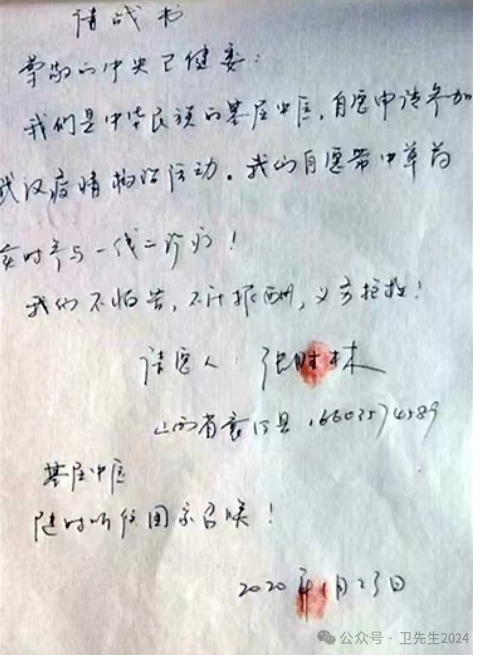 请战书
尊敬的中央卫健委:
我们是中华民族的基层中医,自愿申请参加
武汉疫情防治活动。我们自愿带中草药
实时参与一线工作!
我们不怕苦,不计报酬,义务
请愿人:张胜林
山西省襄汾县 16603574589
基层中医
随时听从国家召唤!
2020年1月23日
公众号·卫先生2024